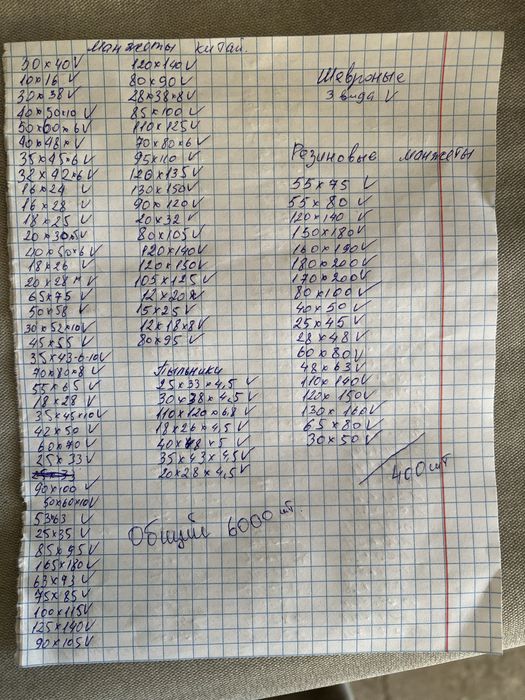 Манжеты китай.
30×40 V
10×16 V
30×38 V
40×50×10 V
50×60×6 V
40×48 V
35×45×6 V
32×42×6 V
16×24 V
16×28 V
18×25 V
20×30×5 V
40×50×6 V
18×26 V
20×28 V
65×75 V
50×58 V
30×52×10 V
45×55 V
35×43-6-10 V
70×80×8 V
55×65 V
18×28 V
35×45×10 V
42×50 V
60×70 V
25×33 V
25×33
90×100 V
50×60×10 V
53×63 V
25×35 V
85×95 V
165×180 V
63×93 V
75×85 V
100×115 V
125×140 V
90×105 V
120×140 V
80×90 V
28×38×8 V
85×100 V
110×125 V
70×80×6 V
95×110 V
120×135 V
130×150 V
90×120 V
20×32 V
80×105 V
120×140 V
120×150 V
105×125 V
12×20 V
15×25 V
12×18×8 V
80×95 V
Пыльники
25×33×4,5 V
30×38×4,5 V
110×120×6,8 V
18×26×4,5 V
40×48×5 V
35×43×4,5 V
20×28×4,5 V
Общий 6000 шт.
Шевроные
3 вида V
Резиновые манжеты
55×75 V
55×80 V
120×140 V
150×180 V
160×190 V
180×200 V
170×200 V
80×100 V
40×50 V
25×45 V
28×48 V
60×80 V
48×63 V
110×140 V
120×150 V
130×160 V
65×80 V
30×50 V
400 шт